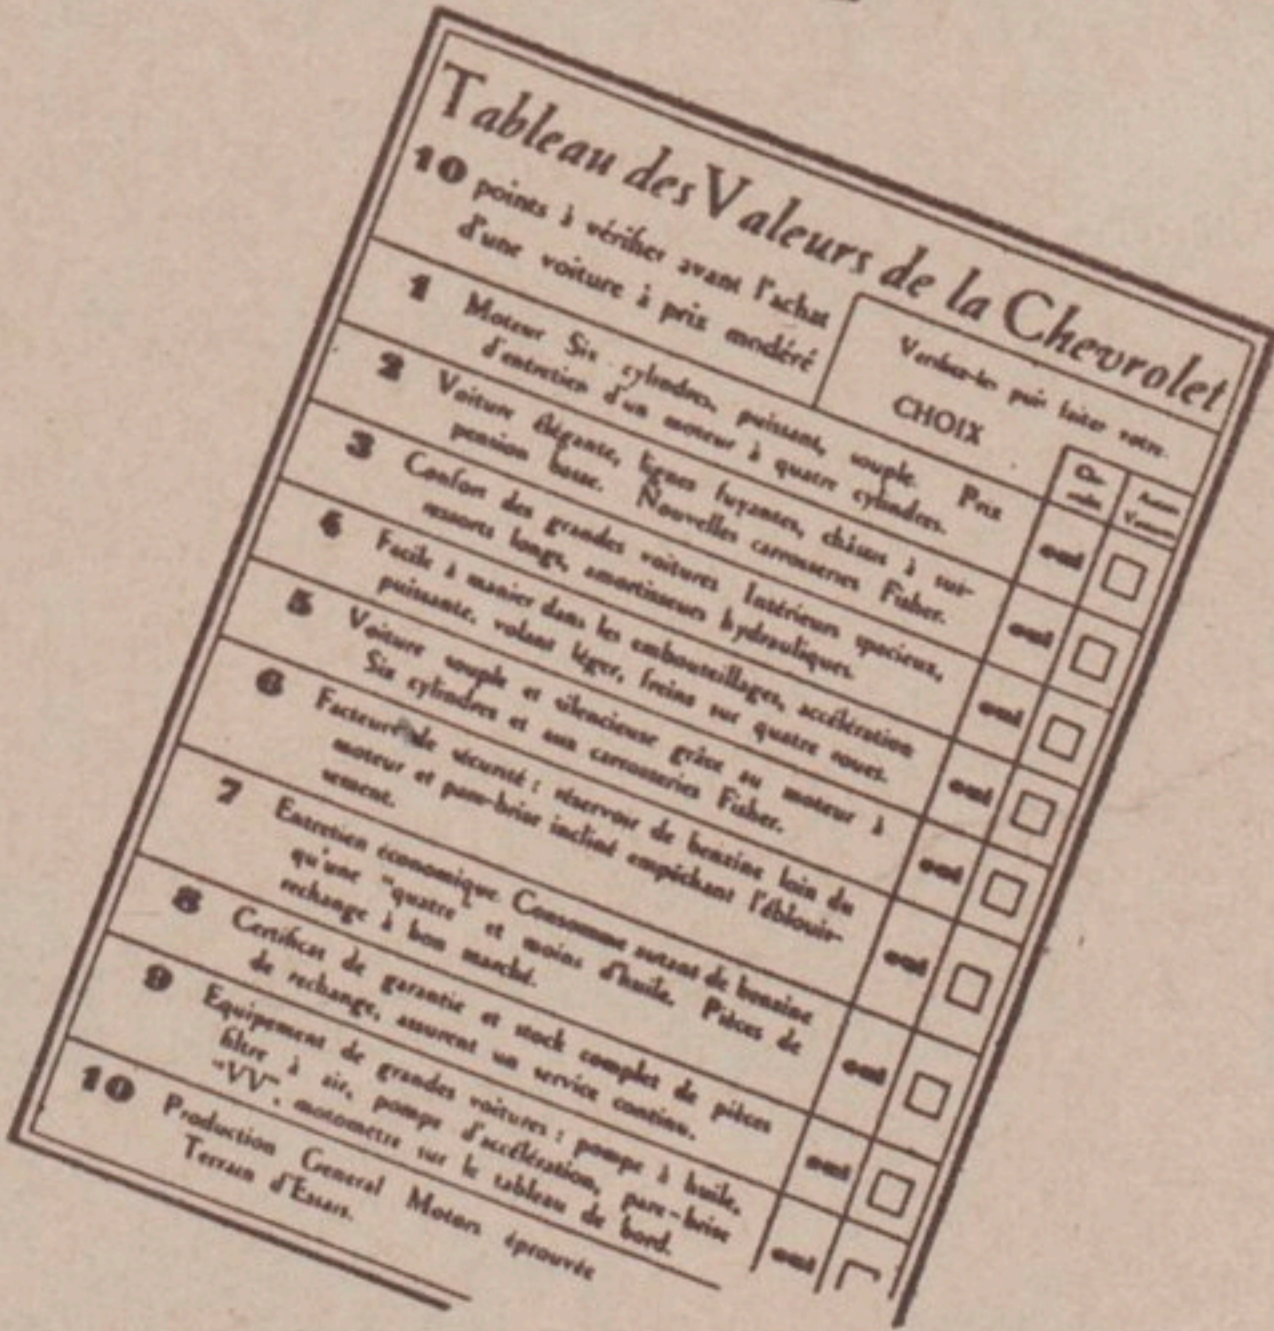 Tableau des Valeurs de la Chevrolet
10 points à vérifier avant l'achat
d'une voiture à prix modéré
Vérifiez-les puis faites votre
CHOIX
1 Moteur Six cylindres, puissant, souple. Prix
d'entretien d'un moteur à quatre cylindres.
oui
2 Voiture élégante, lignes fuyantes, châssis à sus-
pension basse. Nouvelles carrosseries Fisher.
oui
3 Confort des grandes voitures Intérieurs spacieux,
ressorts longs, amortisseurs hydrauliques.
oui
4 Facile à manier dans les embouteillages, accélération
puissante, volant léger, freins sur quatre roues.
oui
5 Voiture souple et silencieuse grâce au moteur à
Six cylindres et aux carrosseries Fisher.
oui
6 Facteurs de sécurité : réservoir de benzine loin du
moteur et pare-brise incliné empêchant l'éblouis-
sement.
oui
7 Entretien économique. Consomme autant de benzine
qu'une "quatre" et moins d'huile. Pièces de
rechange à bon marché.
oui
8 Certificat de garantie et stock complet de pièces
de rechange, assurent un service continu.
oui
9 Equipement de grandes voitures : pompe à huile,
filtre à air, pompe d'accélération, pare-brise
"VV", motomètre sur le tableau de bord.
oui
10 Production General Motors éprouvée
Terrain d'Essais.